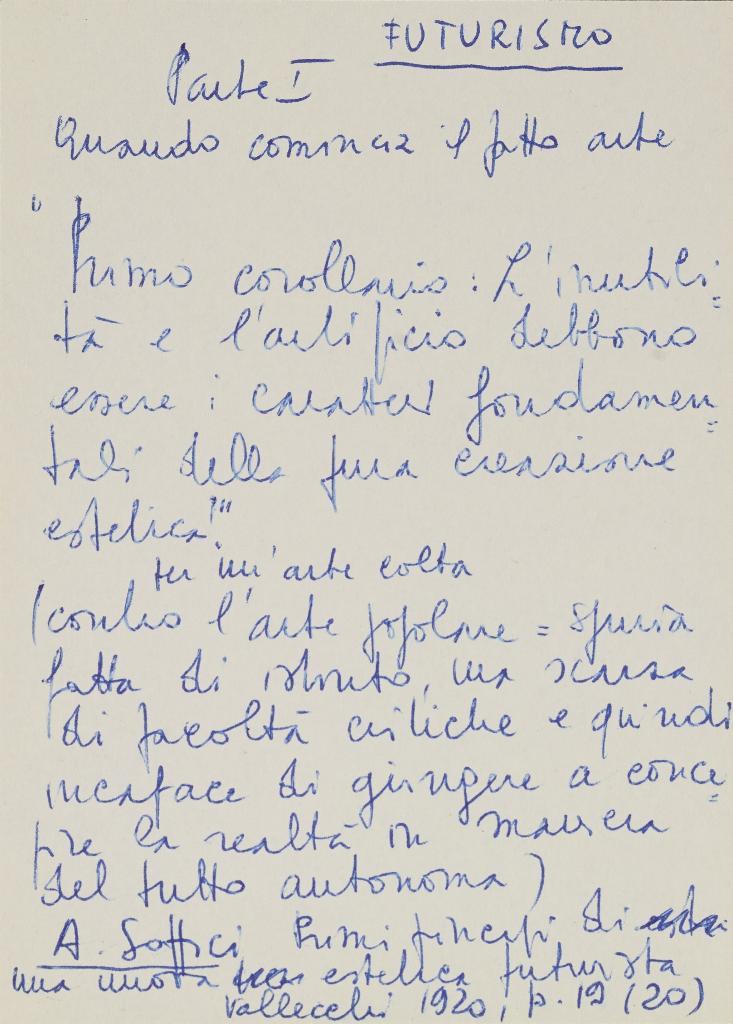 FUTURISMO
Parte I
Quando comincia il fatto arte
"Primo corollario: L'inutili=
tà e l'artificio debbono
essere i caratteri fondamen=
tali della pura creazione
estetica!"
per un'arte colta
(contro l'arte popolare = spuria
fatta di istinto, ma scarsa
di facoltà critiche e quindi
incapace di giungere a conce=
pire la realtà in maniera
del tutto autonoma)
A. Soffici Primi principi di
una nuova estetica futurista
Vallecchi 1920, p. 19 (20)